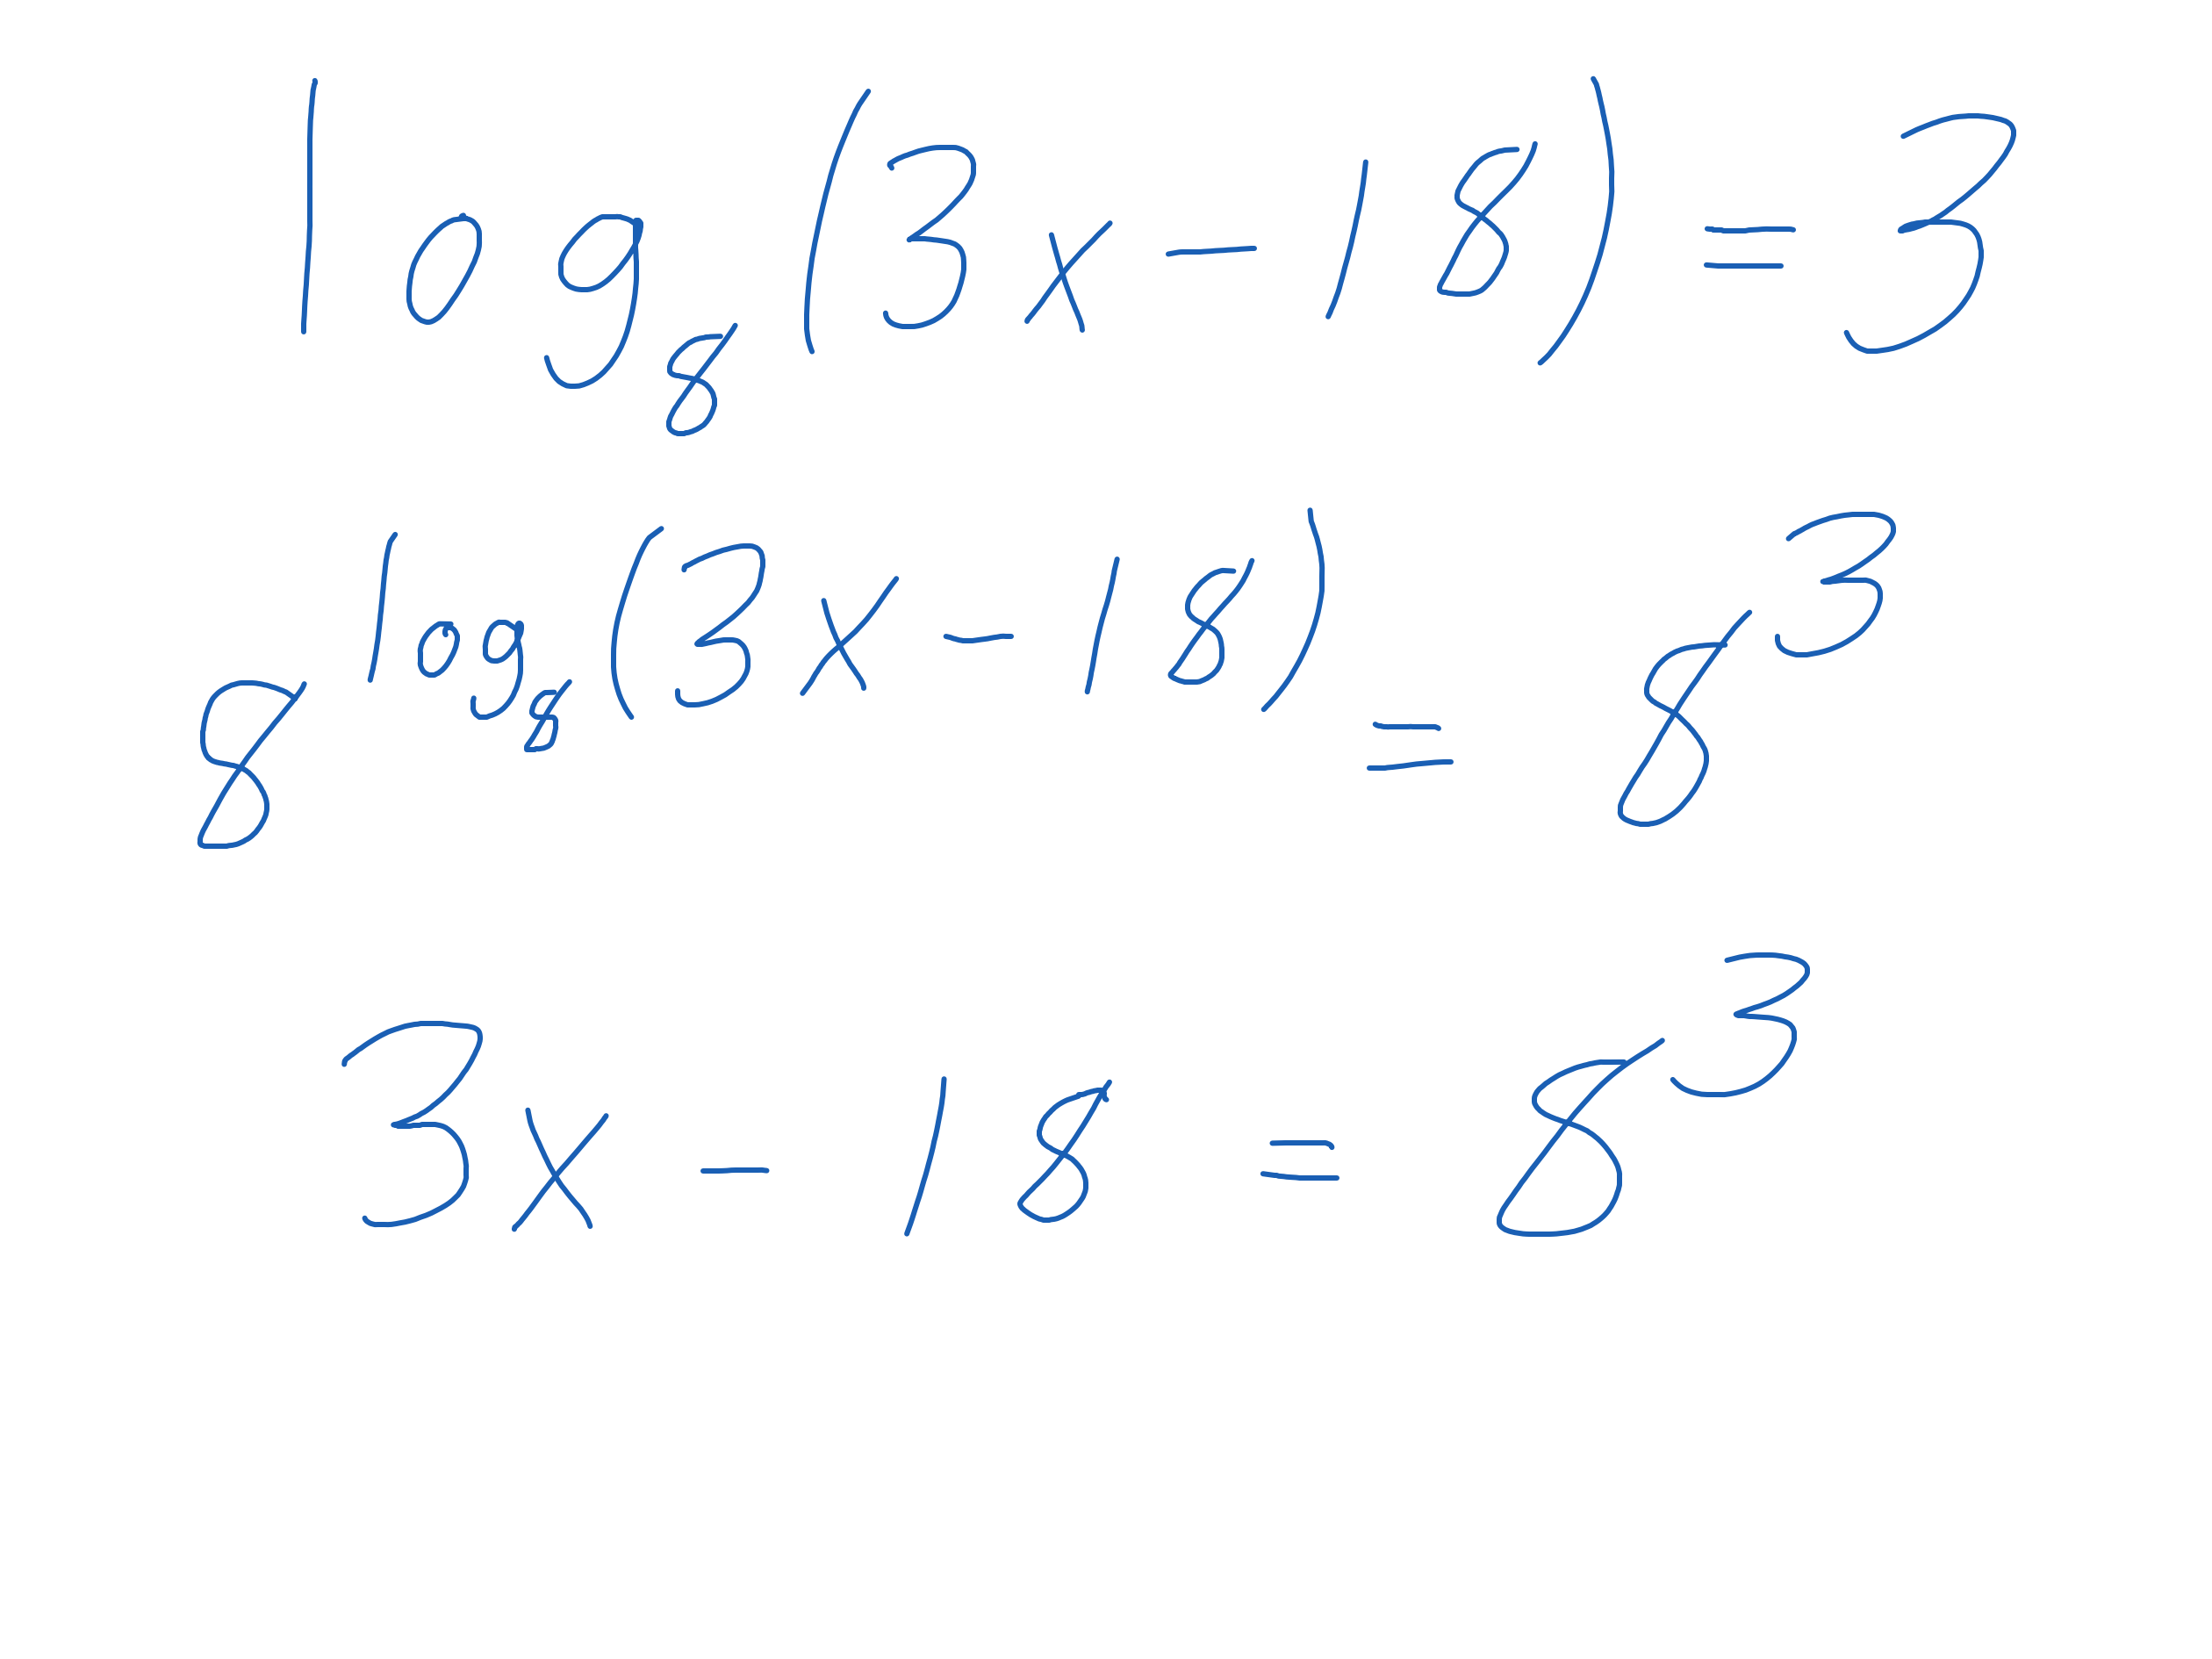 log₈(3x - 18) = 3
8^(log₈(3x - 18)) = 8³
3x - 18 = 8³